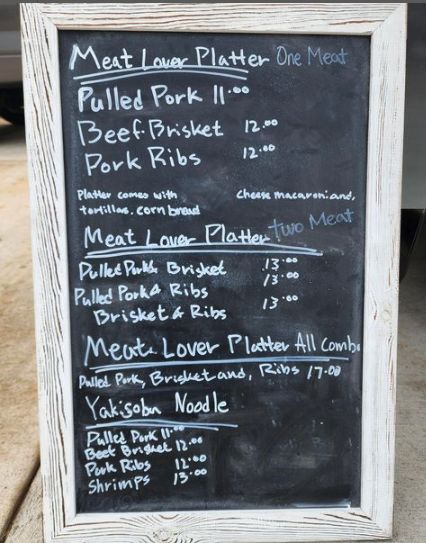 Meat Lover Platter One Meat
Pulled Pork 11.00
Beef Brisket 12.00
Pork Ribs 12.00
Platter comes with cheese macaroni and,
tortillas. corn bread
Meat Lover Platter two Meat
Pulled Pork & Brisket 13.00
Pulled Pork & Ribs 13.00
Brisket & Ribs 13.00
Meat Lover Platter All Combo
Pulled Pork, Brisket and, Ribs 17.00
Yakisoba Noodle
Pulled Pork 11.00
Beef Brisket 12.00
Pork Ribs 12.00
Shrimps 13.00